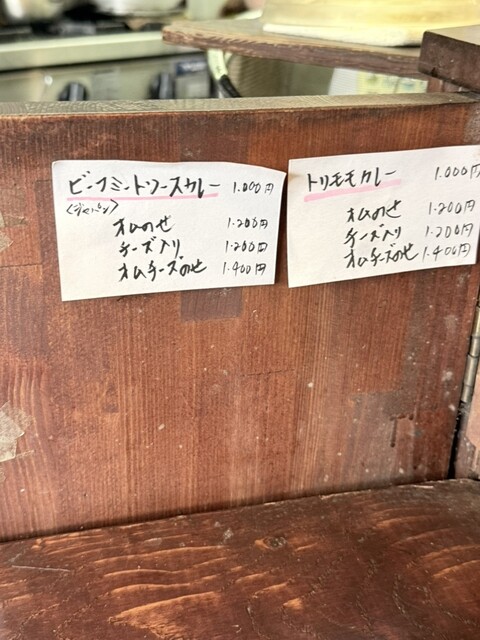 ビーフミートソースカレー 1.000円
〈ジャパン〉
オムのせ 1.200円
チーズ入り 1.200円
オムチーズのせ 1.400円
トリモモカレー 1.000円
オムのせ 1.200円
チーズ入り 1.200円
オムチーズのせ 1.400円